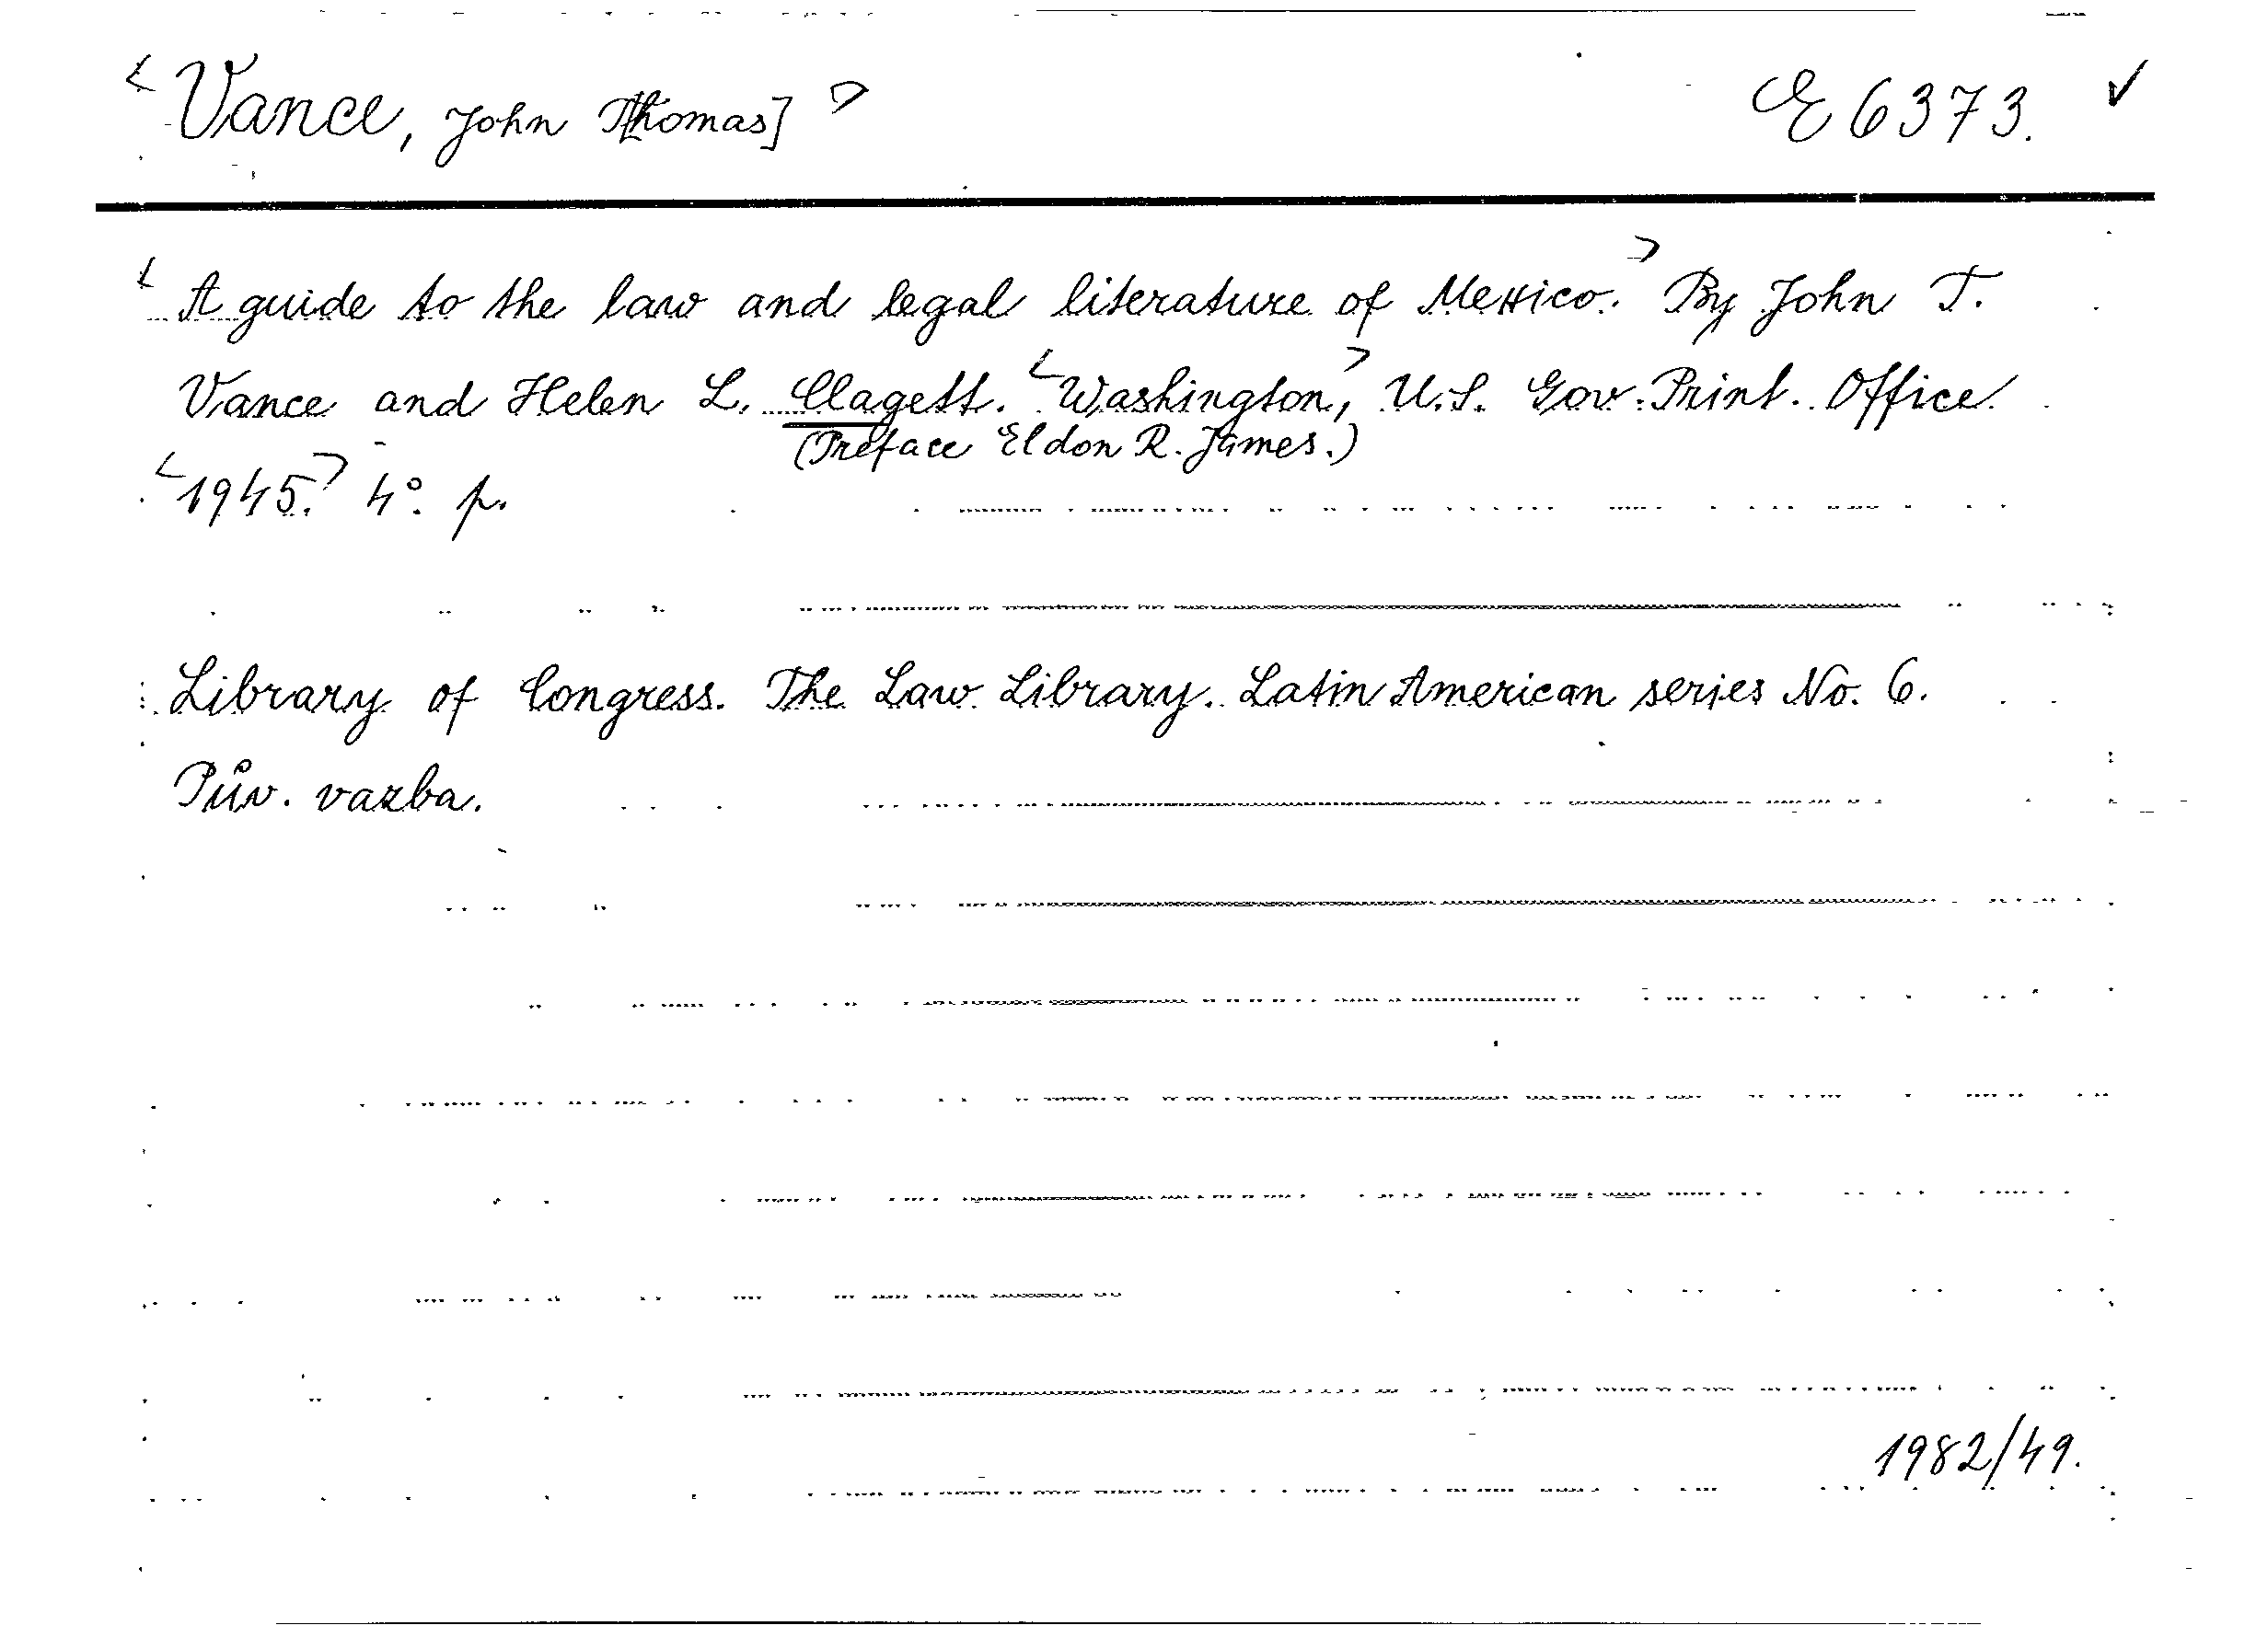 < Vance, John T[homas] > E 6373. ✓
< A guide to the law and legal literature of Mexico. > By John T.
Vance and Helen L. Clagett. < Washington, > U.S. Gov. Print. Office
(Preface Eldon R. James.)
< 1945. > 4° p.
Library of Congress. The Law Library. Latin American series No. 6.
Pův. vazba.
1982/49.